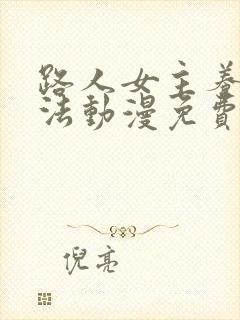 路人女主养
法動漫免費
倪亮